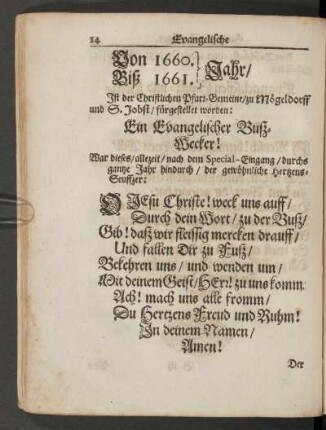 14 Evangelische
Von 1660. } Jahr/
Biß 1661. }
Ist der Christlichen Pfarr-Gemeine/zu Mögeldorff
und S. Jobst/ fürgestellet worden:
Ein Evangelischer Buß-
Wecker!
War dieses/allezeit/ nach dem Special-Eingang/ durchs
gantze Jahr hindurch/ der gewöhnliche Hertzens-
Seufftzer:
O JEsu Christe! weck uns auff/
Durch dein Wort/ zu der Buß/
Gib! daß wir fleissig mercken drauff/
Und fallen Dir zu Fuß/
Bekehren uns/ und wenden um/
Mit deinem Geist/ HErr! zu uns komm
Ach! mach uns alle fromm/
Du Hertzens Freud und Ruhm!
In deinem Namen/
Amen!
Der